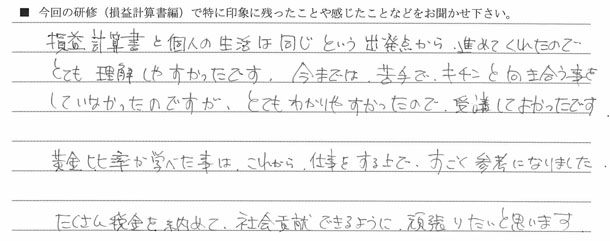 ■ 今回の研修（損益計算書編）で特に印象に残ったことや感じたことなどをお聞かせ下さい。
損益計算書と個人の生活は同じという出発点から、進めてくれたので
とても理解しやすかったです。今までは、苦手で、キチンと向き合う事を
していなかったのですが、とてもわかりやすかったので、受講してよかったです。
黄金比率が学べた事は、これから、仕事をする上で、すごく参考になりました。
たくさん税金を納めて、社会貢献できるように、頑張りたいと思います